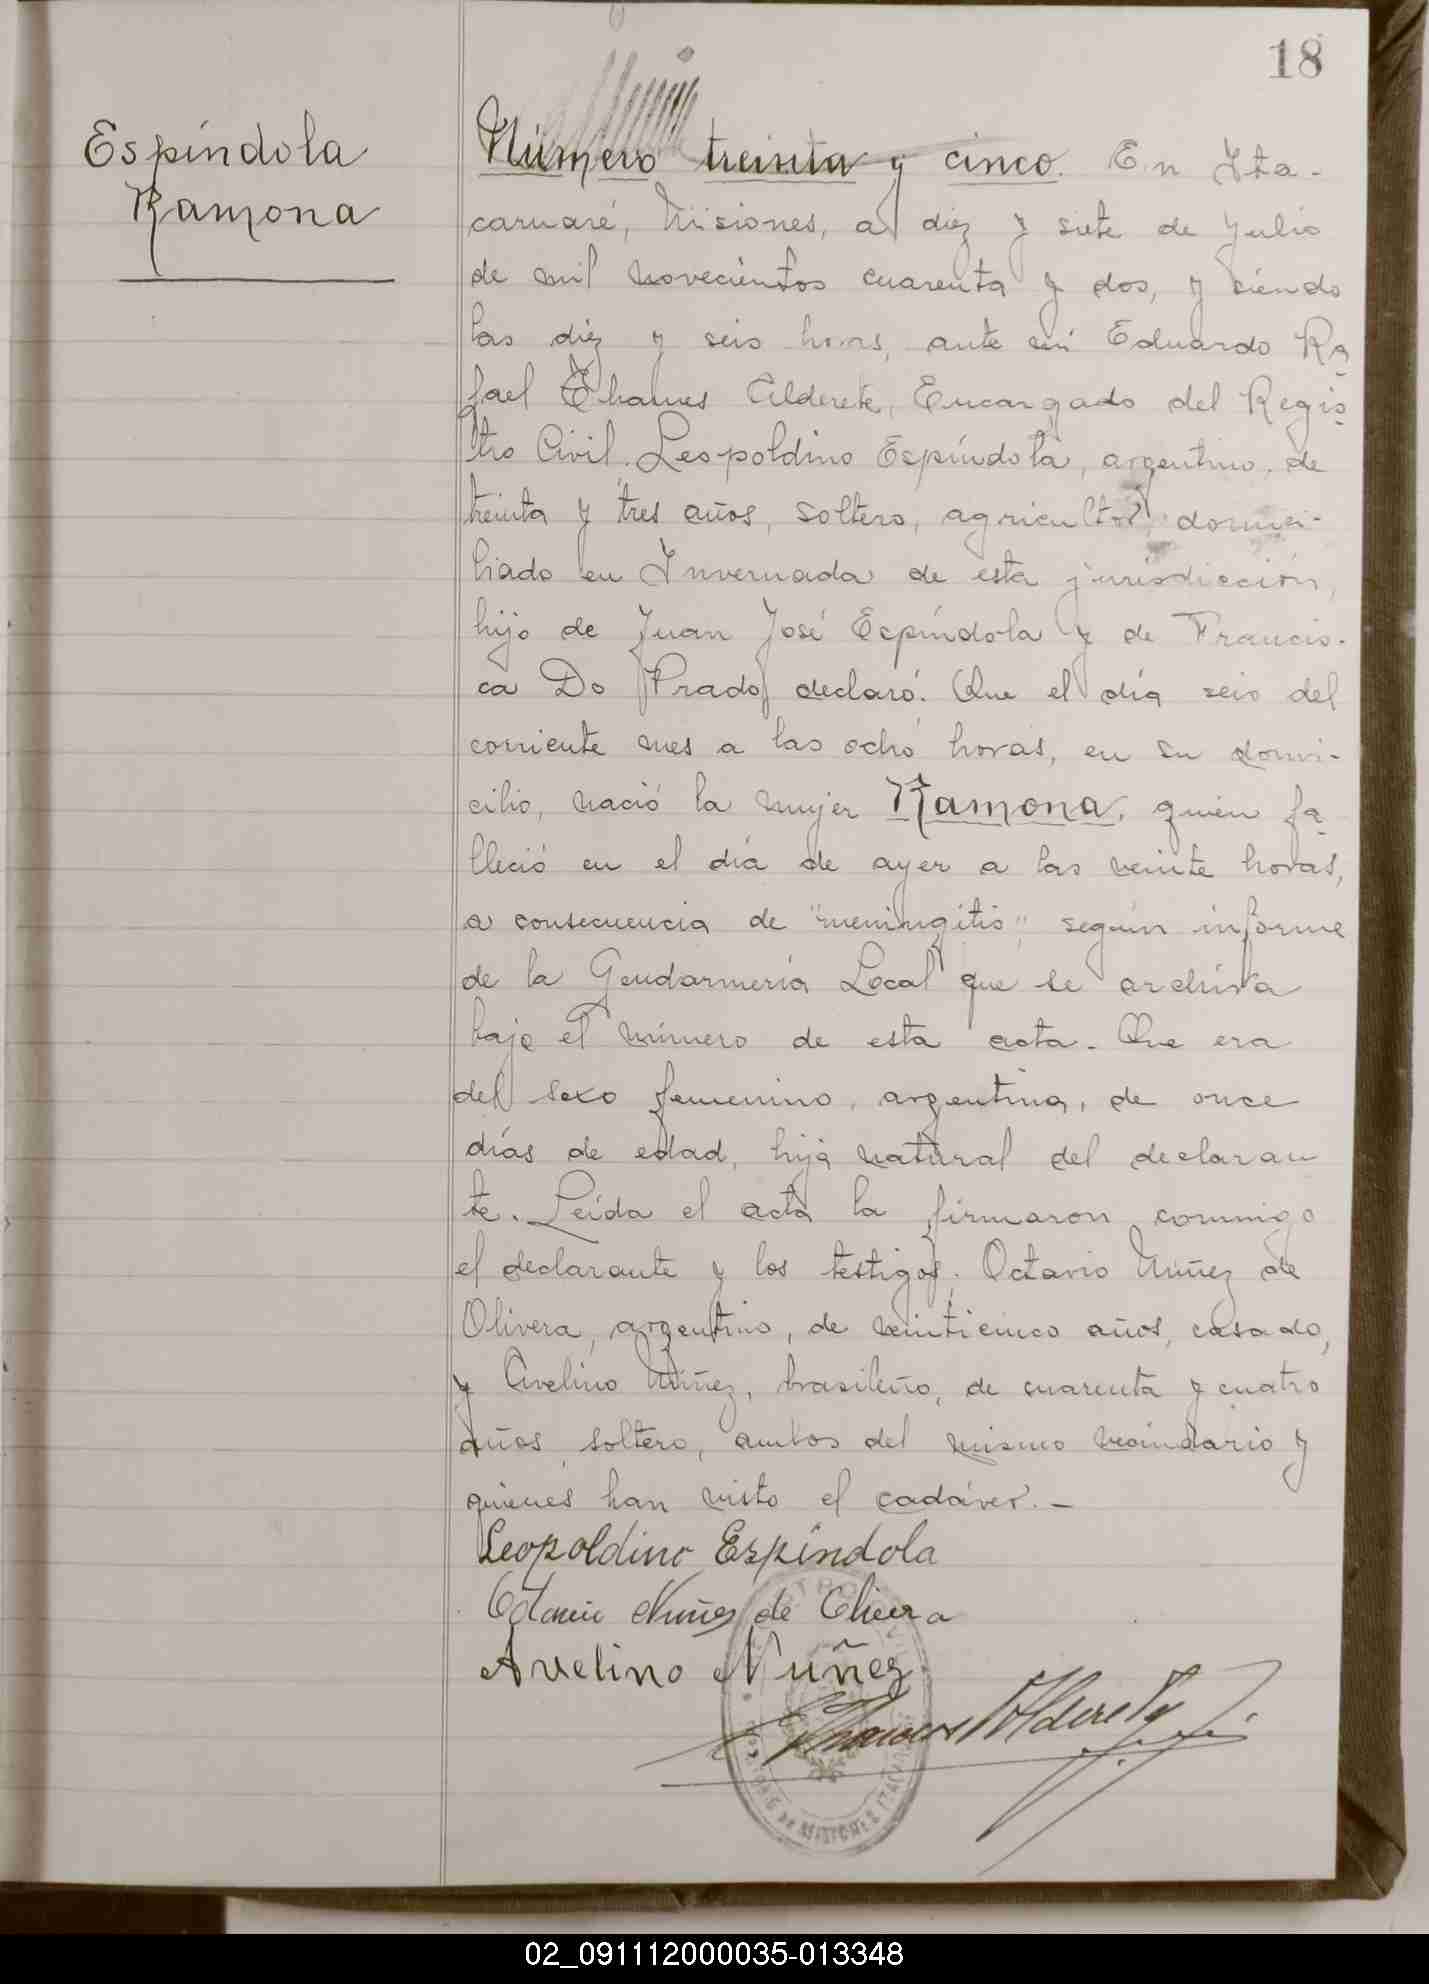 18
Espíndola
Ramona
Número treinta y cinco. En Ita-
caruaré, Misiones, a diez y siete de Julio
de mil novecientos cuarenta y dos, y siendo
las diez y seis horas, ante mí Eduardo Ra-
fael Ehames Alderete, Encargado del Regis-
tro Civil. Leopoldino Espíndola, argentino, de
treinta y tres años, soltero, agricultor, domici-
liado en Invernada de esta jurisdicción,
hijo de Juan José Espíndola y de Francis-
ca Do Prado, declaró: Que el día seis del
corriente mes a las ocho horas, en su domi-
cilio, nació la mujer Ramona, quien fa-
lleció en el día de ayer a las veinte horas,
a consecuencia de "meningitis", según informe
de la Gendarmería Local que se archiva
bajo el número de esta acta. Que era
del sexo femenino, argentina, de once
días de edad, hija natural del declaran
te. Leída el acta la firmaron conmigo
el declarante y los testigos, Octavio Núñez de
Olivera, argentino, de veinticinco años, casado,
y Avelino Núñez, brasileño, de cuarenta y cuatro
años, soltero, ambos del mismo vecindario y
quienes han visto el cadáver.-
Leopoldino Espíndola
Octavio Nuñez de Olivera
Avelino Nuñez
Ehames Alderete
02_091112000035-013348